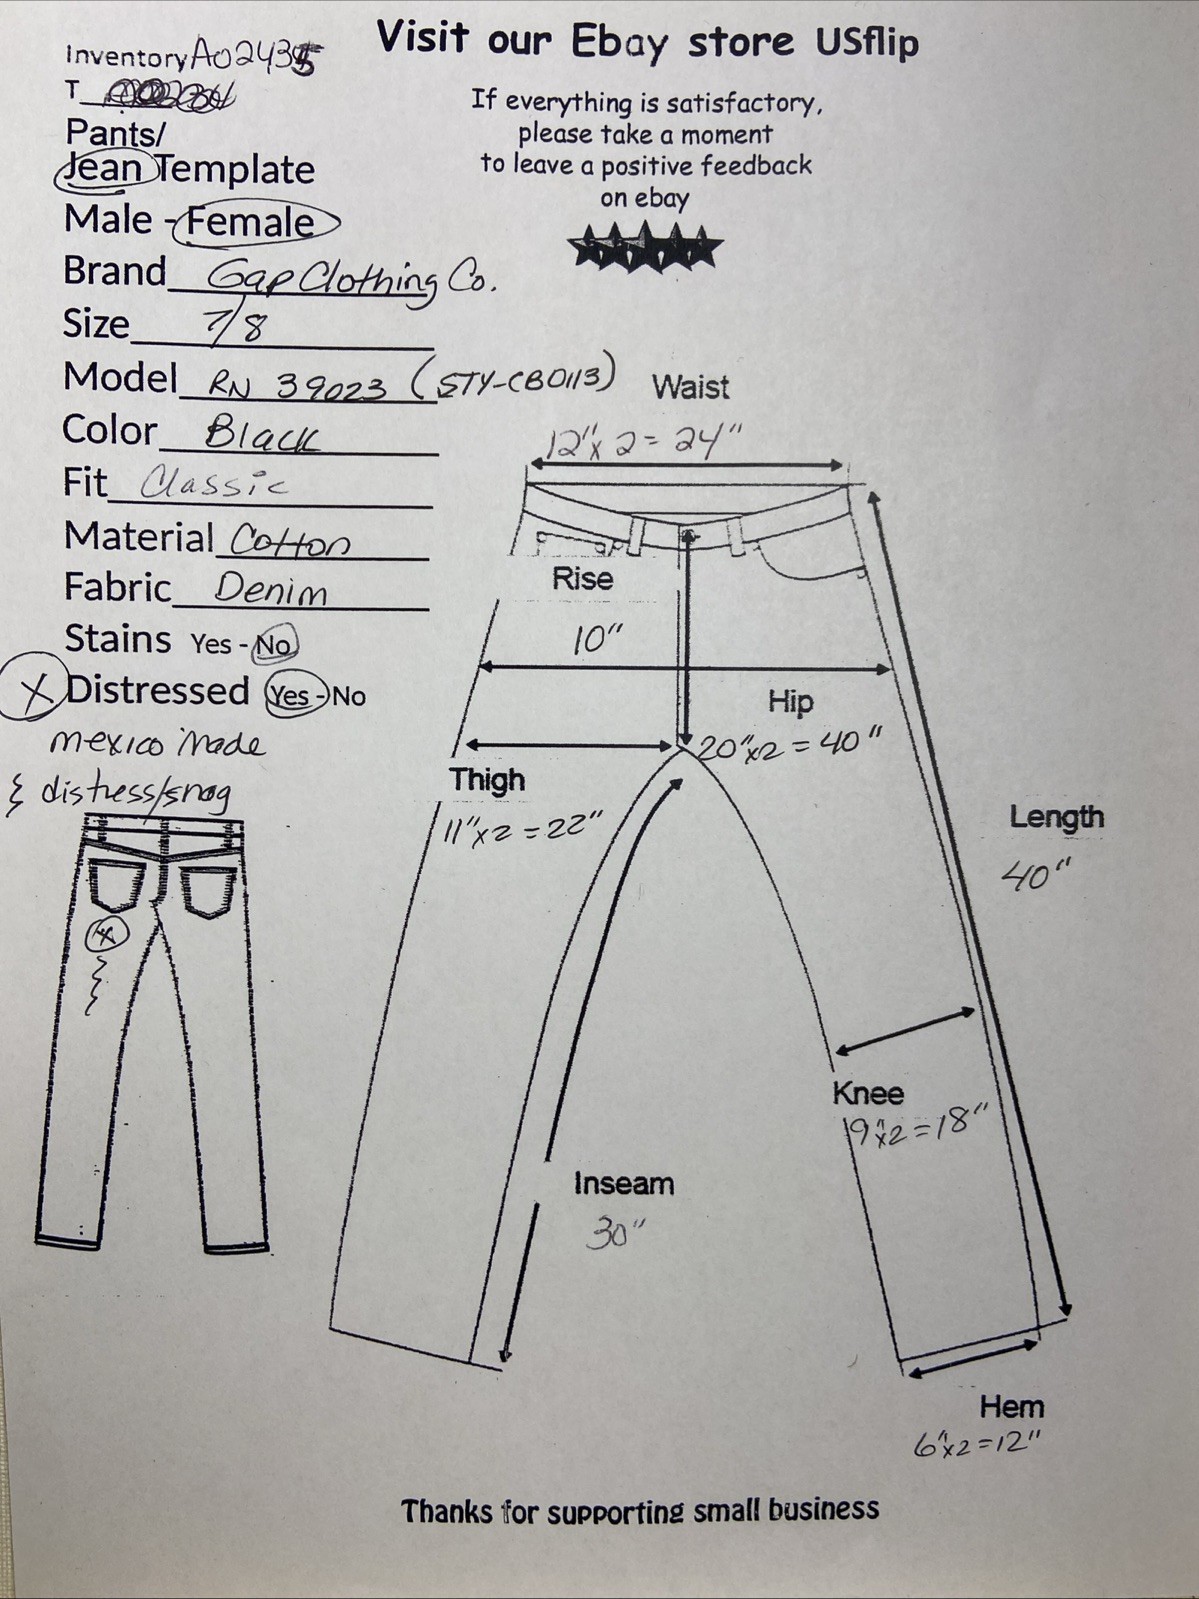 Visit our Ebay store USflip
If everything is satisfactory,
please take a moment
to leave a positive feedback
on ebay
Inventory A02435
T
Pants/
Jean Template
Male - Female
Brand Gap Clothing Co.
Size 7/8
Model RN 39023 (STY-CB0113)
Color Black
Fit Classic
Material Cotton
Fabric Denim
Stains Yes - No
X Distressed Yes - No
mexico made
distress/snag
X
Waist
12"x 2 = 24"
Rise
10"
Hip
20"x2 = 40"
Thigh
11"x2 = 22"
Length
40"
Knee
9"x2=18"
Inseam
30"
Hem
6"x2=12"
Thanks for supporting small business